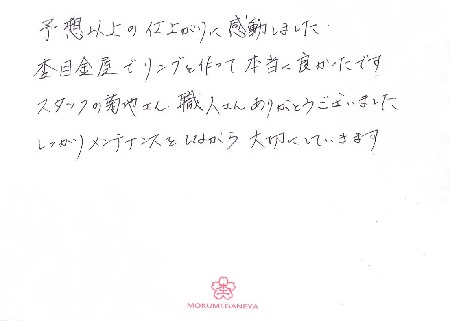 予想以上の仕上がりに感動しました.
杢目金屋でリングを作って本当に良かったです
スタッフの菊地さん、職人さんありがとうございました
しっかりメンテナンスをしながら大切にしていきます
MOKUMEGANEYA